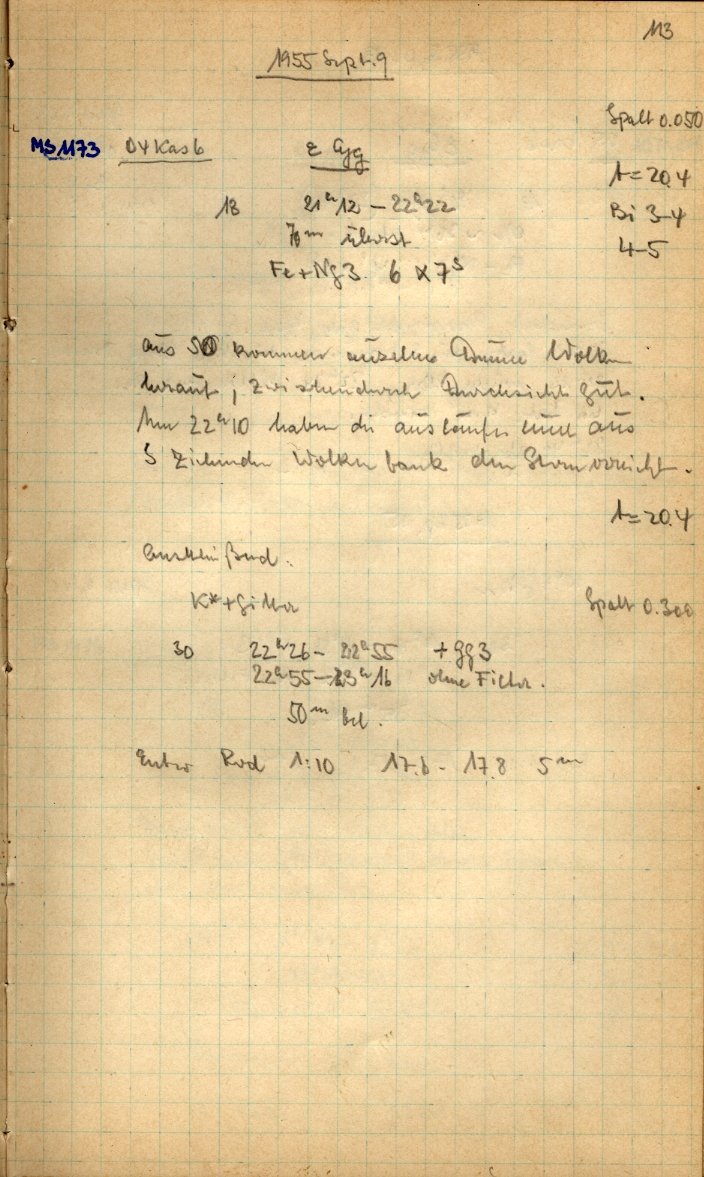 113
1955 Sept. 9
Spalt 0.050
MS1173 O4 Kas 6 z Cyg
t=20.4
18 21ʰ12 – 22ʰ22 Bi 3-4
70ᵐ überst. 4-5
Fe+Ng3 6 x 7ˢ
aus SO kommen einzelne dünne Wolken
herauf; zwischendurch Durchsicht gut.
Um 22ʰ10 haben die Ausläufer einer aus
S ziehenden Wolkenbank den Stern erreicht.
t=20.4
K*+Gitter Spalt 0.300
30 22ʰ26 – 22ʰ55 +Gg3
22ʰ55 – 23ʰ16 ohne Filter.
50ᵐ bel.
Entw Rod 1:10 17.6 - 17.8 5ᵐ